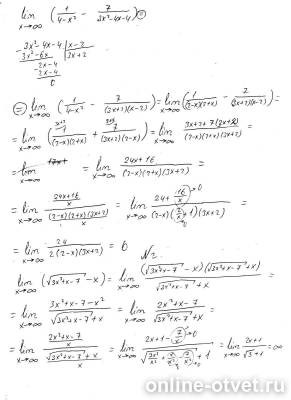 lim x→∞ (1/(4-x²) - 7/(3x²-4x-4)) =
3x²-4x-4 | x-2
3x²-6x | 3x+2
2x-4
2x-4
0
= lim x→∞ (1/(4-x²) - 7/((3x+2)(x-2))) = lim x→∞ (1/((2-x)(2+x)) - 7/((3x+2)(x-2))) =
= lim x→∞ (1/((2-x)(2+x)) + 7/((3x+2)(2-x))) = lim x→∞ (3x+2+7(2+x))/((2-x)(2+x)(3x+2)) =
= lim x→∞ = lim x→∞ (24x+16)/((2-x)(2+x)(3x+2)) =
= lim x→∞ ((24x+16)/x)/(((2-x)(2+x)(3x+2))/x) = lim x→∞ (24+16/x→0)/((2-x)(2/x+1)(3x+2)) =
= lim x→∞ 24/(2(2-x)(3x+2)) = 0
N2.
lim x→∞ (√(3x²+x-7) - x) = lim x→∞ ((√(3x²+x-7) - x)(√(3x²+x-7) + x))/(√(3x²+x-7) + x) =
= lim x→∞ (3x²+x-7-x²)/(√(3x²+x-7) + x) = lim x→∞ (2x²+x-7)/(√(3x²+x-7) + x) =
= lim x→∞ ((2x²+x-7)/x)/((√(3x²+x-7) + x)/x) = lim x→∞ (2x+1-7/x→0)/(√(3x²/x²+x/x²-7/x²)+1) = lim x→∞ (2x+1)/(√3+1) = ∞
online-otvet.ru